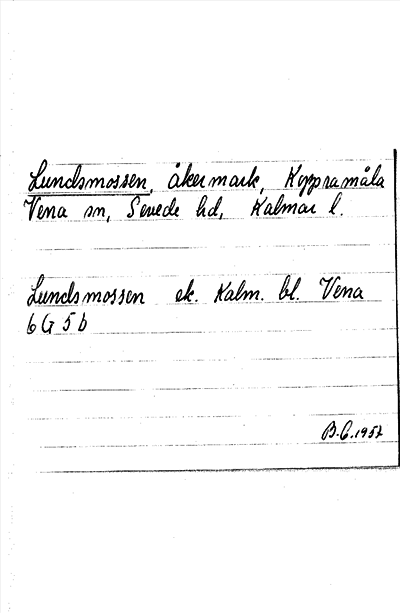 Lundsmossen, åkermark, Koppramåla
Vena sn, Sevede hd, Kalmar l.
Lundsmossen ek. Kalm. bl. Vena
6 G 5 b
B.G. 1957